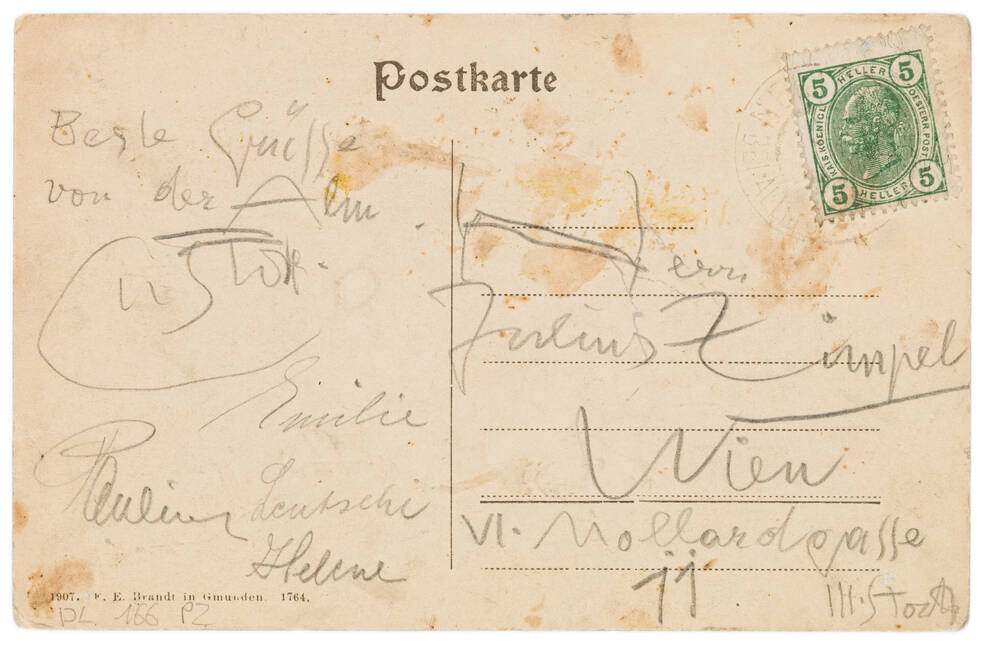 Postkarte
5 HELLER 5
KAIS. KOENIGL. OESTERR. POST.
5 HELLER 5
Beste Grüsse
von der Alm.
Herrn
Julius Zimpel
Wien
VI. Mollardgasse
11
III. Stock
Emilie
Pauline Leutschi
Helene
1907. F. E. Brandt in Gmunden. 1764.
PL. 166 PZ